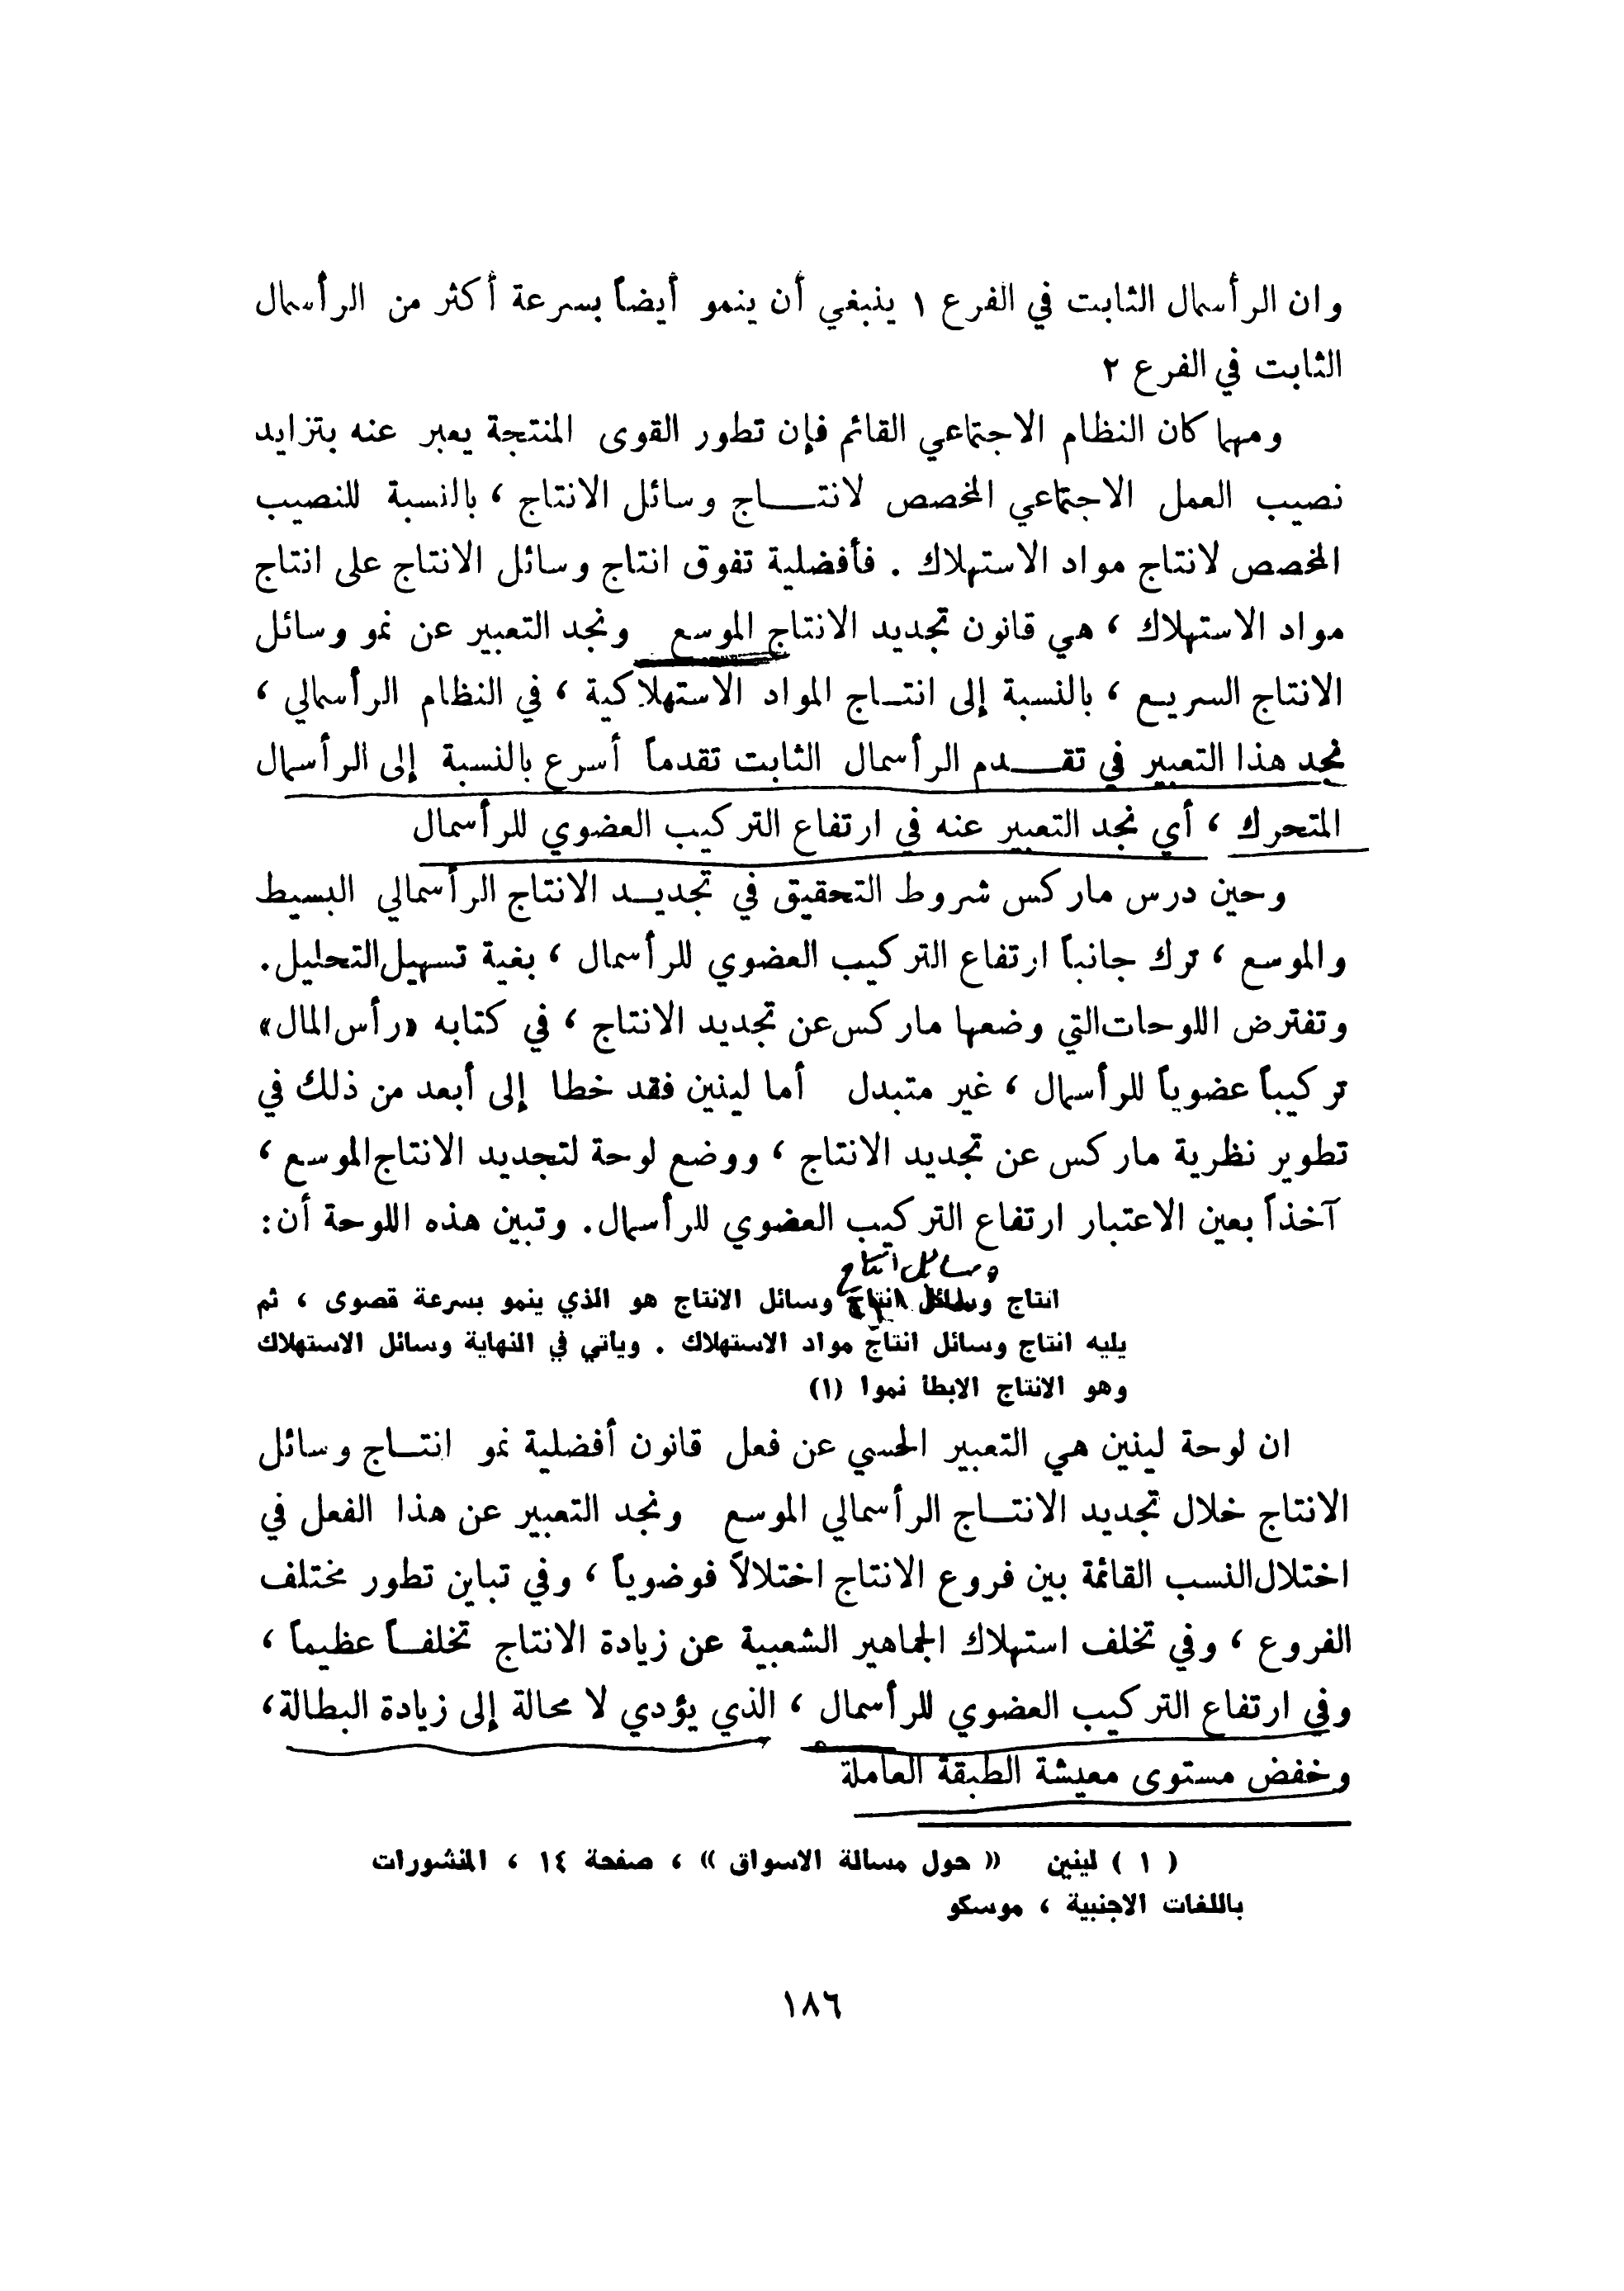 وان الرأسمال الثابت في الفرع ١ ينبغي أن ينمو أيضاً بسرعة أكثر من الرأسمال
الثابت في الفرع ٢
ومهما كان النظام الاجتماعي القائم فإن تطور القوى المنتجة يعبر عنه بتزايد
نصيب العمل الاجتماعي المخصص لانتاج وسائل الانتاج ، بالنسبة للنصيب
المخصص لانتاج مواد الاستهلاك . فأفضلية تفوق انتاج وسائل الانتاج على انتاج
مواد الاستهلاك ، هي قانون تجديد الانتاج الموسع ونجد التعبير عن نمو وسائل
الانتاج السريع ، بالنسبة إلى انتاج المواد الاستهلاكية ، في النظام الرأسمالي ،
نجد هذا التعبير في تقدم الرأسمال الثابت تقدماً أسرع بالنسبة إلى الرأسمال
المتحرك ، أي نجد التعبير عنه في ارتفاع التركيب العضوي للرأسمال
وحين درس ماركس شروط التحقيق في تجديد الانتاج الرأسمالي البسيط
والموسع ، ترك جانباً ارتفاع التركيب العضوي للرأسمال ، بغية تسهيل التحليل.
وتفترض اللوحات التي وضعها ماركس عن تجديد الانتاج ، في كتابه «رأس المال»
تركيباً عضوياً للرأسمال ، غير متبدل أما لينين فقد خطا إلى أبعد من ذلك في
تطوير نظرية ماركس عن تجديد الانتاج ، ووضع لوحة لتجديد الانتاج الموسع ،
آخذاً بعين الاعتبار ارتفاع التركيب العضوي للرأسمال. وتبين هذه اللوحة أن:
وسائل انتاج
انتاج وسائل انتاج وسائل الانتاج هو الذي ينمو بسرعة قصوى ، ثم
يليه انتاج وسائل انتاج مواد الاستهلاك . وياتي في النهاية وسائل الاستهلاك
وهو الانتاج الابطا نموا (١)
ان لوحة لينين هي التعبير الحسي عن فعل قانون أفضلية نمو انتاج وسائل
الانتاج خلال تجديد الانتاج الرأسمالي الموسع ونجد التعبير عن هذا الفعل في
اختلال النسب القائمة بين فروع الانتاج اختلالاً فوضوياً ، وفي تباين تطور مختلف
الفروع ، وفي تخلف استهلاك الجماهير الشعبية عن زيادة الانتاج تخلفاً عظيماً ،
وفي ارتفاع التركيب العضوي للرأسمال ، الذي يؤدي لا محالة إلى زيادة البطالة،
وخفض مستوى معيشة الطبقة العاملة
( ١ ) لينين « حول مسالة الاسواق » ، صفحة ١٤ ، المنشورات
باللغات الاجنبية ، موسكو
١٨٦